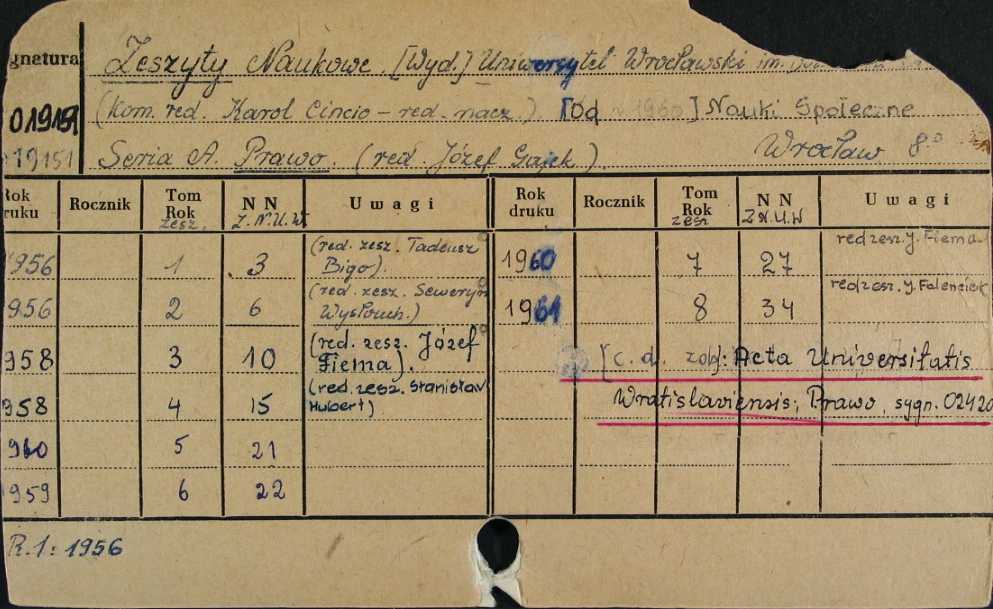 gnatura Zeszyty Naukowe. [Wyd.] Uniwersytet Wrocławski im.
019151 (kom. red. Karol Cincio - red. nacz.) [Od 1960] Nauki Społeczne
19151 Seria A. Prawo. (red. Józef Gajek) Wrocław 8°
Rok druku Rocznik Tom Rok zesz. N N Z.N.U.W. Uwagi Rok druku Rocznik Tom Rok zesz N N Z.N.U.W Uwagi
1956 1 3 (red. zesz. Tadeusz Bigo). 1960 7 27 red zesz. J. Fiema
956 2 6 (red. zesz. Seweryn Wysłouch.) 1961 8 34 red zesz. J. Falenciak
958 3 10 (red. zesz. Józef Fiema). [c. d. zob: Acta Universitatis
958 4 15 (red. zesz. Stanisław Hubert) Wratislaviensis, Prawo, sygn. 02420
960 5 21
959 6 22
R.1: 1956